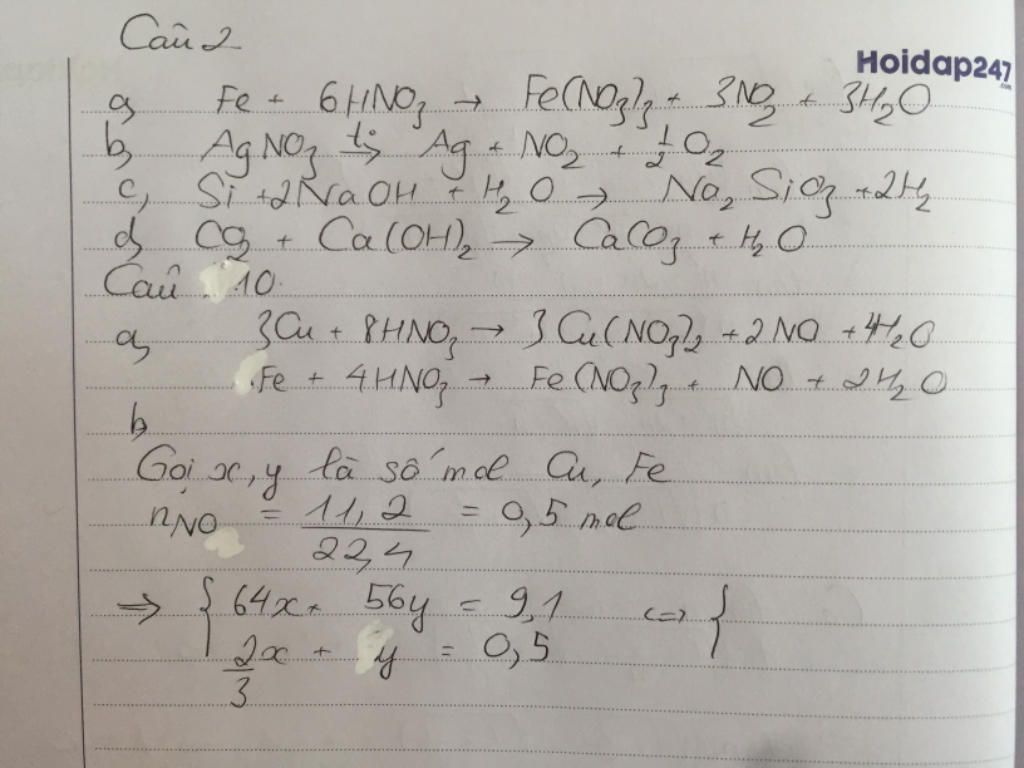 Câu 2
Hoidap247
.com
a, Fe + 6HNO3 → Fe(NO3)3 + 3NO2 + 3H2O
b, AgNO3 t°→ Ag + NO2 + 1/2 O2
c, Si + 2NaOH + H2O → Na2SiO3 + 2H2
d, CO2 + Ca(OH)2 → CaCO3 + H2O
Câu 10
a, 3Cu + 8HNO3 → 3Cu(NO3)2 + 2NO + 4H2O
Fe + 4HNO3 → Fe(NO3)3 + NO + 2H2O
b
Gọi x, y là số mol Cu, Fe
nNO = 11,2/22,4 = 0,5 mol
=> { 64x + 56y = 9,1 <=> {
2/3 x + y = 0,5